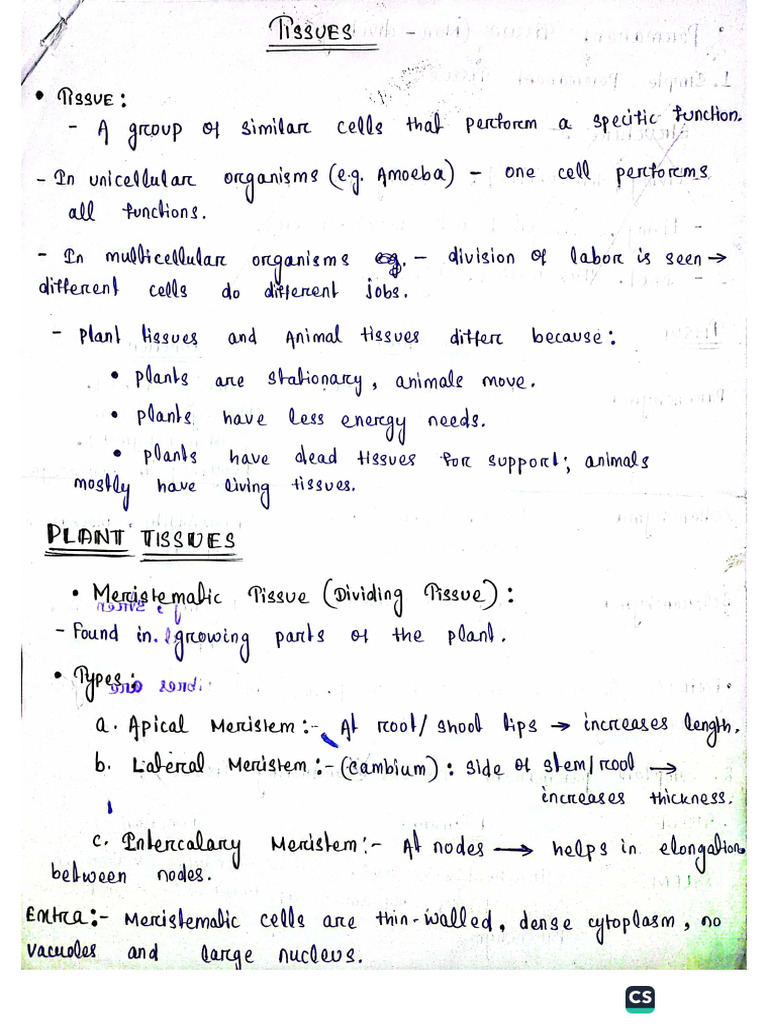 TISSUES
• Tissue:
- A group of similar cells that perform a specific function.
- In unicellular organisms (e.g. Amoeba) - one cell performs
all functions.
- In multicellular organisms eg. - division of labor is seen →
different cells do different jobs.
- Plant tissues and Animal tissues differ because:
• Plants are stationary, animals move.
• Plants have less energy needs.
• Plants have dead tissues for support; animals
mostly have living tissues.
PLANT TISSUES
• Meristematic Tissue (Dividing Tissue):
- Found in growing parts of the plant.
• Types:
a. Apical Meristem:- At root/shoot tips → increases length.
b. Lateral Meristem:- (Cambium): Side of stem/root →
increases thickness.
c. Intercalary Meristem:- At nodes → helps in elongation
between nodes.
Extra:- Meristematic cells are thin-walled, dense cytoplasm, no
vacuoles and large nucleus.
CS